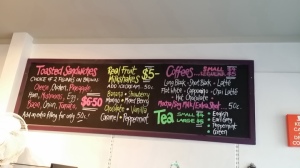 Toasted Sandwiches
CHOICE OF 2 FILLINGS ON BROWN
Cheese, Chicken, Pineapple,
Ham, Mushrooms, Egg,
Bacon, Onion, Tomato.
$6.50
Add an extra filling for only 50c!
Real Fruit
Milkshakes
$5-
ADD ICECREAM .50c
Banana • Strawberry
Mango • Mixed Berry
Chocolate • Vanilla
Caramel • Peppermint
Coffees
SMALL $4
Long Black - Short Black - Latte
Flat White - Cappuccino - Chai Latte
Hot Chocolate
Mocha/Soy Milk/Extra Shot 50c.
Tea
SMALL
LARGE
• English
• Earl Grey
• Peppermint
• Green